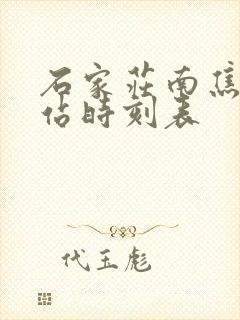 石家莊南焦
佔時刻表
代玉彪